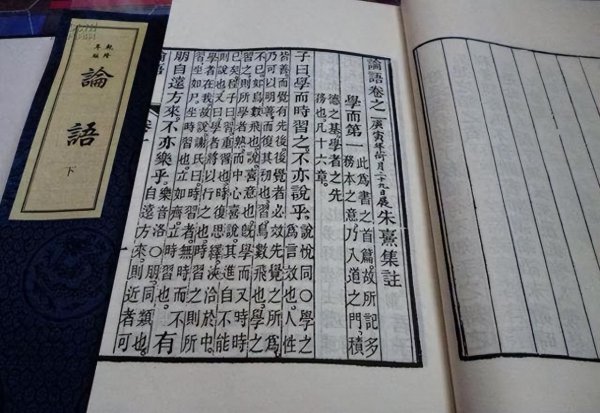 論語
下
論語卷之一 庚寅年荷月二十九日展 朱熹集註
學而第一 此爲書之首篇故所記多
務本之意乃入道之門積
德之基學者之先
務也凡十六章。
子曰學而時習之不亦說乎。說悅同〇學之
爲言效也人性
皆善而覺有先後後覺者必效先覺之所爲
乃可以明善而復其初也習鳥數飛也學之
不已如鳥數飛也說喜意也旣學而又時時
習之則所學者熟而中心喜說其進自不能
已矣程子曰習重習也時復思繹浹洽於中
則說也又曰學者將以行之也時習之則所
學者在我故說謝氏曰時習者無時而不
習坐如尸坐時習也立如齊立時習也。有
朋自遠方來不亦樂乎。樂音洛〇朋同類也
自遠方來則近者可
論語
卷一
一